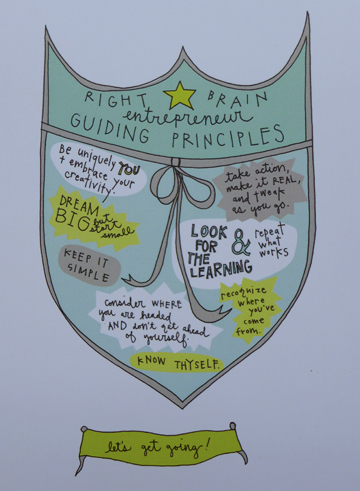 RIGHT BRAIN
entrepreneur
GUIDING PRINCIPLES
Be uniquely YOU
+ embrace your
creativity!
take action,
make it REAL,
and tweak
as you go.
DREAM
BIG but
start
small
LOOK
FOR
THE
LEARNING
& repeat
what
works
KEEP IT
SIMPLE
consider WHERE
you are headed
AND don't get ahead
of yourself.
recognize
where
you've
come
from.
KNOW THYSELF.
let's get going!